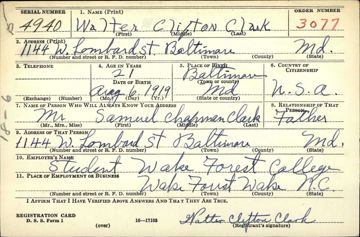 SERIAL NUMBER 1. NAME (Print) ORDER NUMBER
4940 Walter Clifton Clark 3077
(First) (Middle) (Last)
2. ADDRESS (Print)
1144 W. Lombard St. Baltimore Md.
(Number and street or R. F. D. number) (Town) (County) (State)
3. TELEPHONE 4. AGE IN YEARS 5. PLACE OF BIRTH 6. COUNTRY OF CITIZENSHIP
21 Baltimore
DATE OF BIRTH (Town or county)
Aug 6, 1919 Md U.S.A.
(Exchange) (Number) (Mo.) (Day) (Yr.) (State or country)
7. NAME OF PERSON WHO WILL ALWAYS KNOW YOUR ADDRESS 8. RELATIONSHIP OF THAT PERSON
Mr Samuel Chapman Clark Father
(Mr., Mrs., Miss) (First) (Middle) (Last)
9. ADDRESS OF THAT PERSON
1144 W. Lombard St Baltimore Md.
(Number and street or R. F. D. number) (Town) (County) (State)
10. EMPLOYER'S NAME
Student Wake Forest College
11. PLACE OF EMPLOYMENT OR BUSINESS
Wake Forest Wake N.C.
(Number and street or R. F. D. number) (Town) (County) (State)
I AFFIRM THAT I HAVE VERIFIED ABOVE ANSWERS AND THAT THEY ARE TRUE.
REGISTRATION CARD
D. S. S. Form 1 16—17105 Walter Clifton Clark
(over) (Registrant's signature)